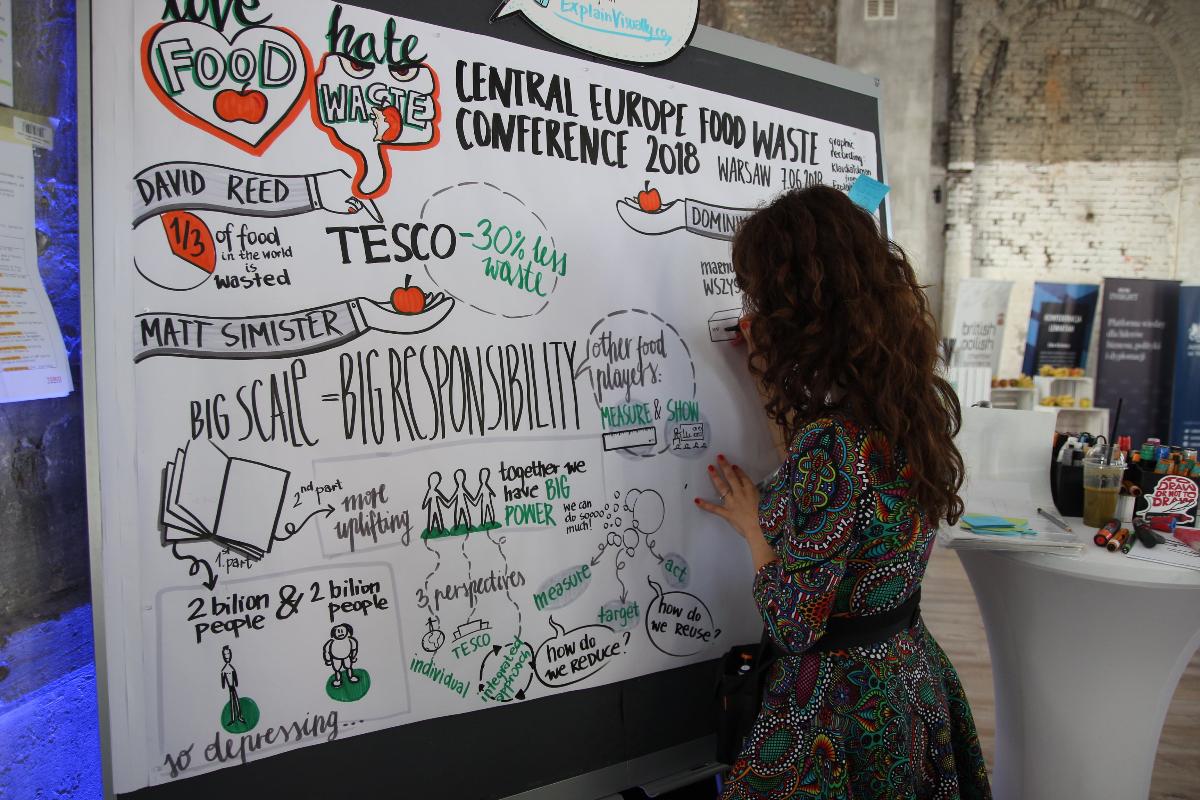 ExplainVisually.co
love
FOOD
hate
WASTE
CENTRAL EUROPE FOOD WASTE
CONFERENCE 2018
WARSAW 7.06.2018
graphic
recording:
DAVID REED
1/3
of food
in the world
is
wasted
TESCO
-30% less
waste
MATT SIMISTER
BIG SCALE = BIG RESPONSIBILITY
other food
players:
MEASURE & SHOW
2nd part
1st part
more
uplifting
together we
have BIG
POWER
we can
do sooo
much!
2 bilion
people
&
2 bilion
people
so depressing...
3 perspectives
individual
TESCO
integrated
approach
measure
target
act
how do
we REDUCE?
how do
we REUSE?
british
polish
DRAW
OR NOT TO
DRAW